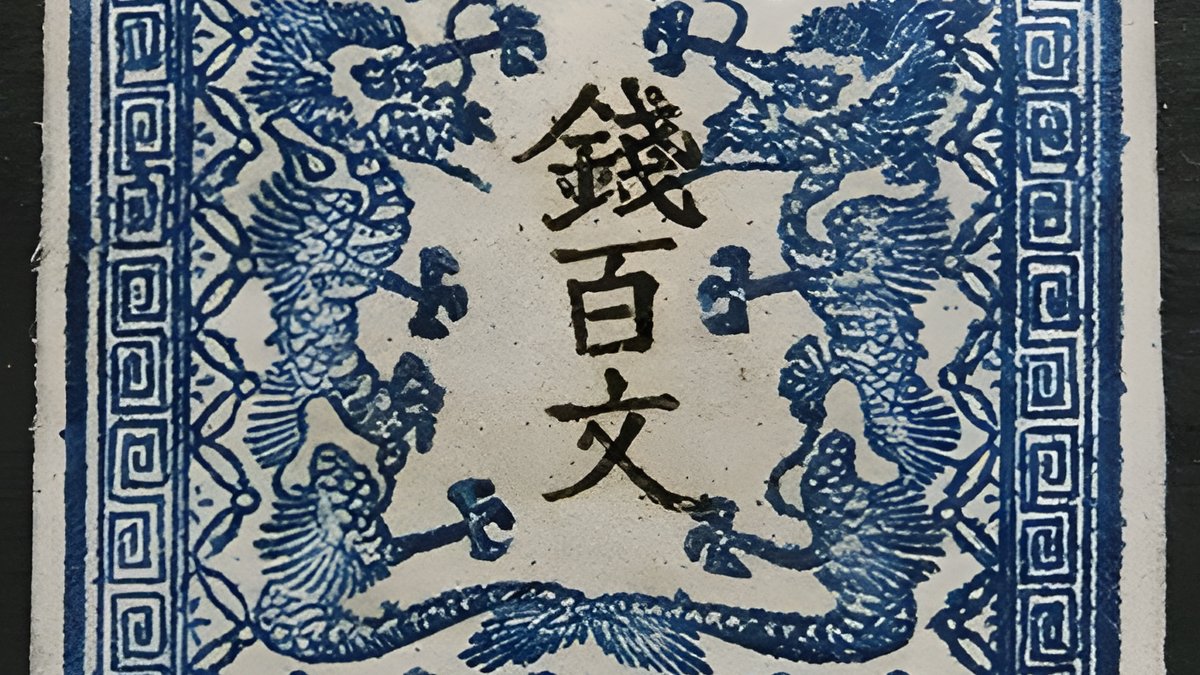 錢百文